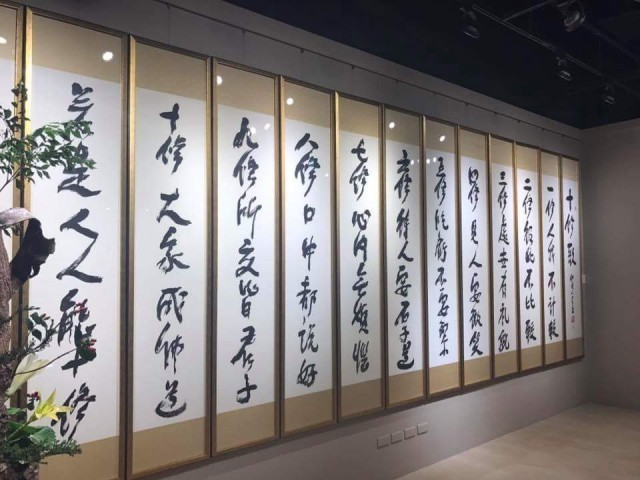 十修歌
一修人我不計較
二修彼此不比較
三修處世有礼貌
四修見人要微笑
五修吃虧不要緊
六修待人要厚道
七修心內无煩惱
八修口中都說好
九修所交皆君子
十修大家成佛道
若是人人能十修